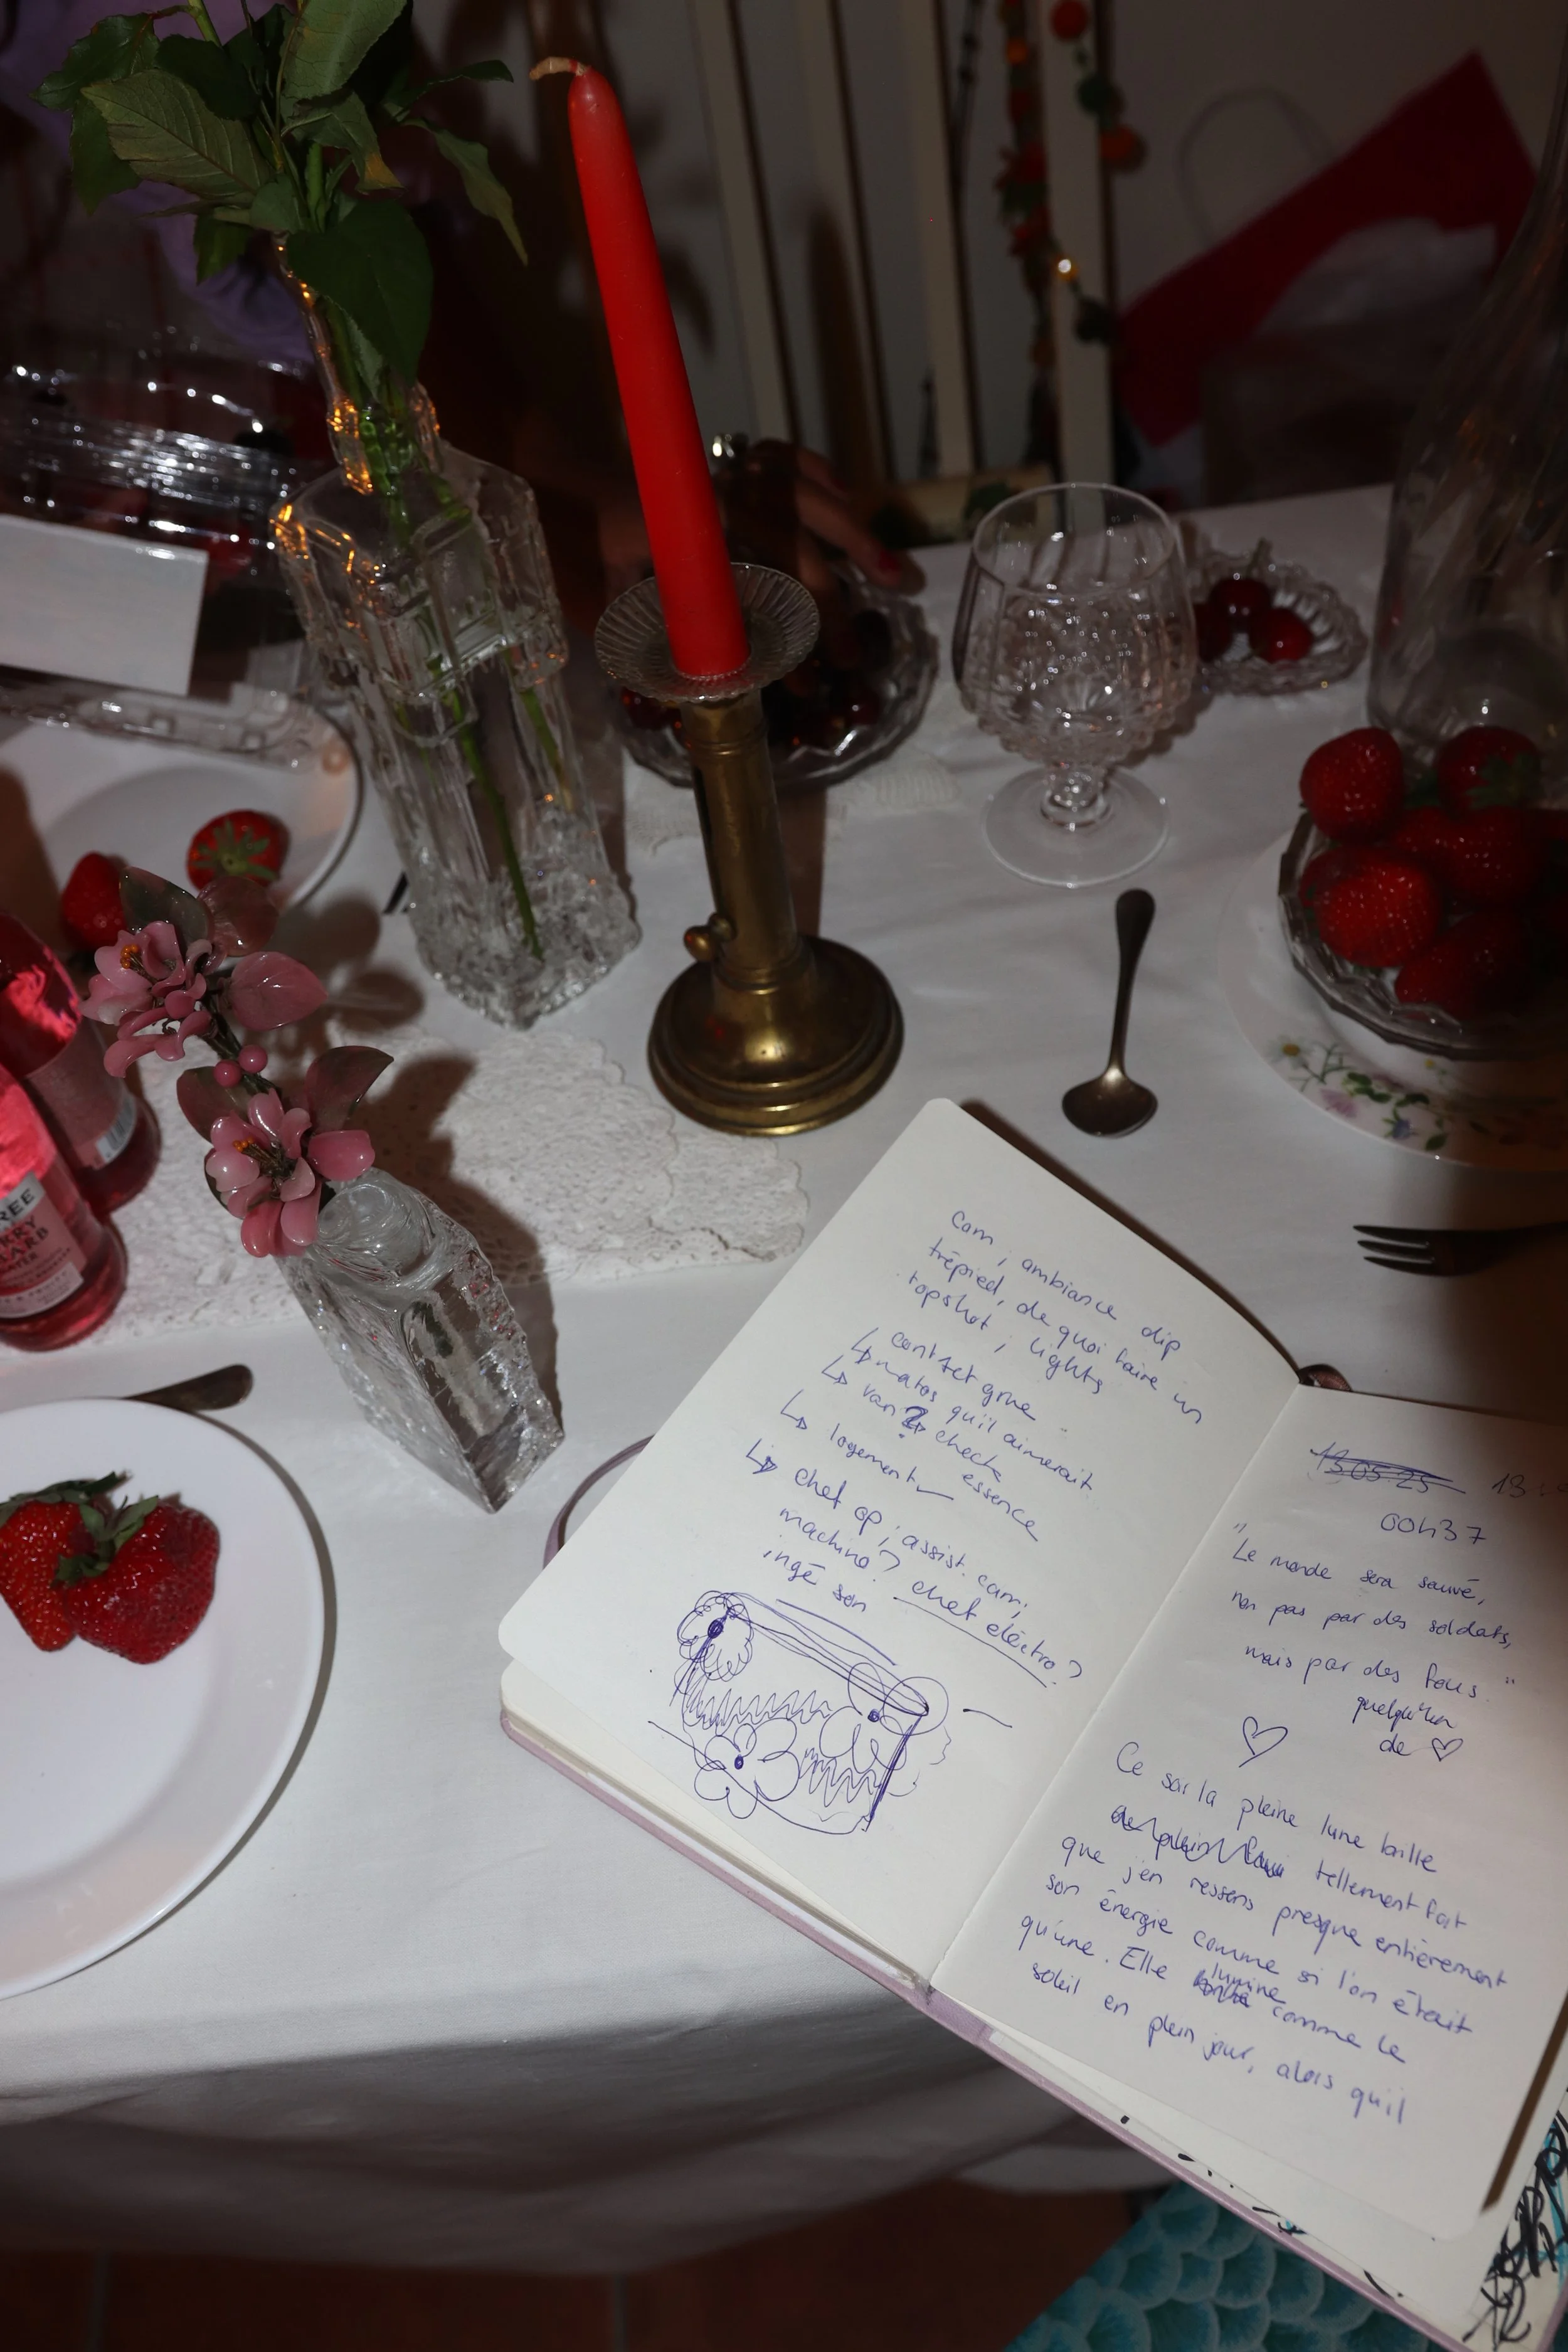 REE
RRY
ARB
Cam ; ambiance dip
trépied, de quoi faire un
topshot ; lights
↳ contact grue
↳ matos qu'il aimerait
↳ van ? check
essence
↳ logement
↳ chef op ; assist. cam ;
machino ? chef eléctro ?
ingé son
13.05.25 13
00h37
"Le monde sera sauvé,
non pas par des soldats,
mais par des fous."
quelqu'un
de ♡
♡
Ce soir la pleine lune brille
tellement fort
que j'en ressens presque entièrement
son énergie comme si l'on était
qu'une. Elle lumine comme le
soleil en plein jour, alors qu'il